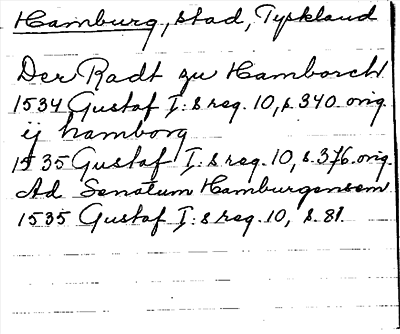 Hamburg, stad, Tyskland
Der Radt zu Hamborch
1534 Gustaf I:s reg. 10, s. 340 orig.
ij hamborg
1535 Gustaf I:s reg. 10, s. 376. orig.
Ad Senatum Hamburgensem
1535 Gustaf I:s reg. 10, s. 81.